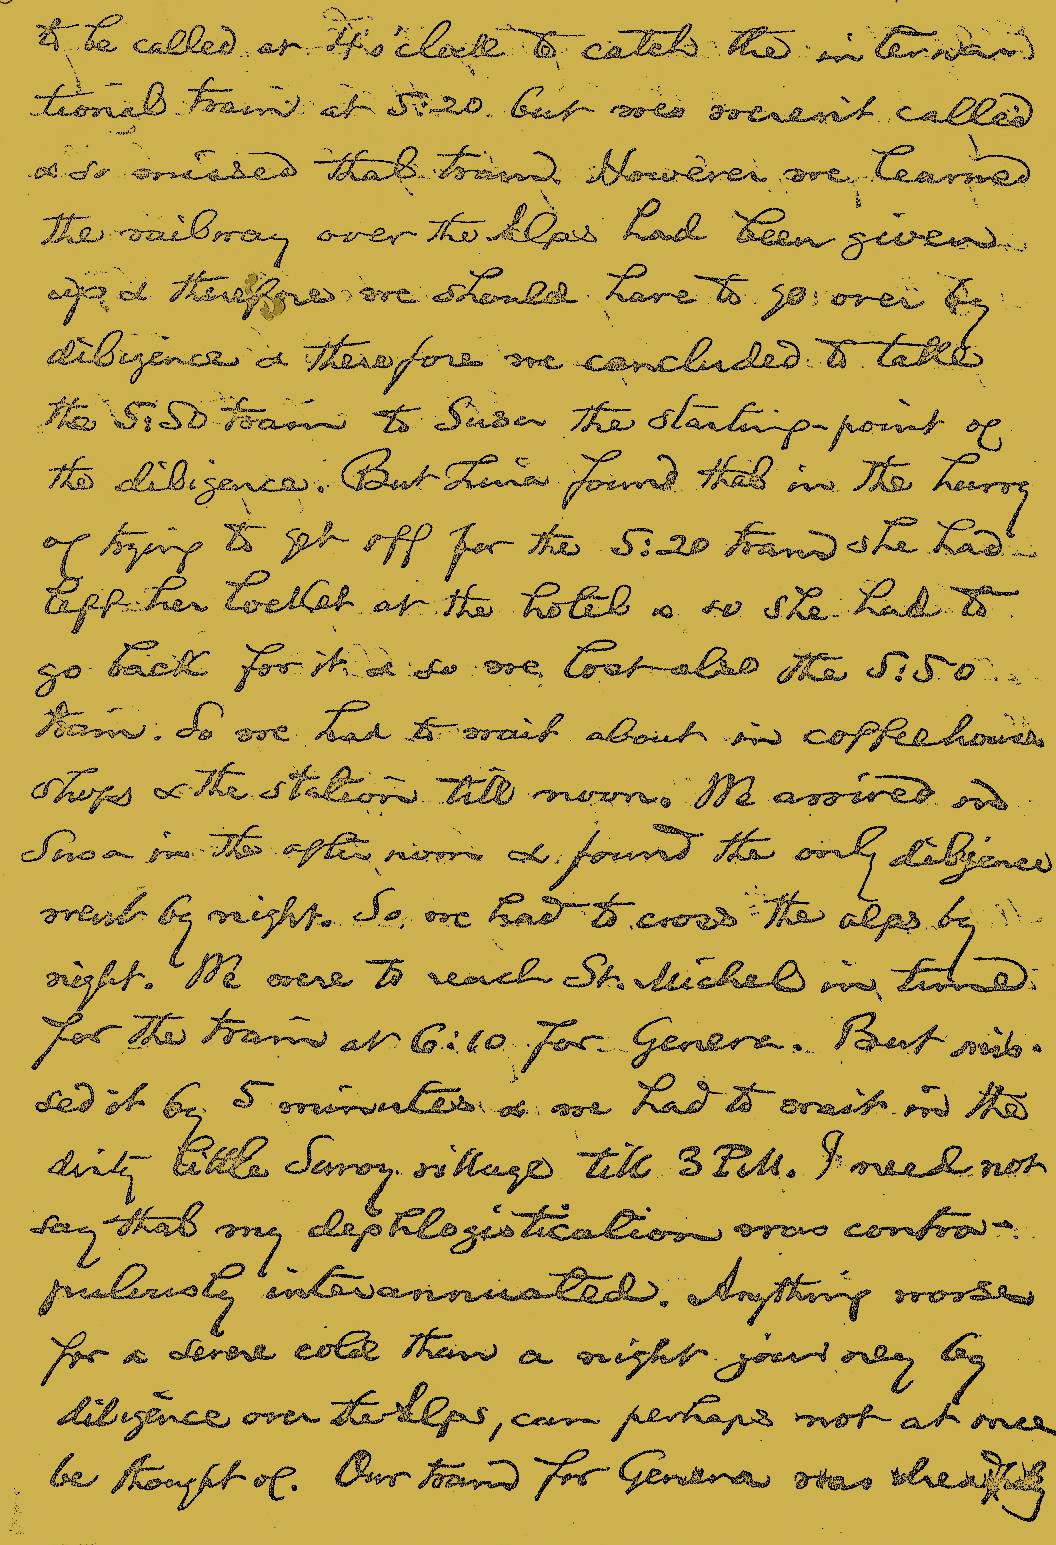 to be called at 4 o'clock to catch the interna
tional train at 5:20. but we weren't called
& so missed that train. However we learned
the railway over the Alps had been given
up & therefore we should have to go over by
diligence & therefore we concluded to take
the 5:50 train to Susa the starting-point of
the diligence. But Lina found that in the hurry
of trying to get off for the 5:20 train she had
left her locket at the hotel & so she had to
go back for it & so we lost also the 5:50
train. So we had to wait about in coffeehouses
shops & the station till noon. We arrived in
Susa in the afternoon & found the only diligence
went by night. So we had to cross the alps by
night. We were to reach St. Michel in time
for the train at 6:10 for Geneva. But mis-
sed it by 5 minutes & we had to wait in the
dirty little Savoy village till 3 P.M. I need not
say that my dephlogistication was contra-
puluously interannuated. Anything worse
for a severe cold than a night journey by
diligence over the Alps, can perhaps not at once
be thought of. Our train for Geneva was